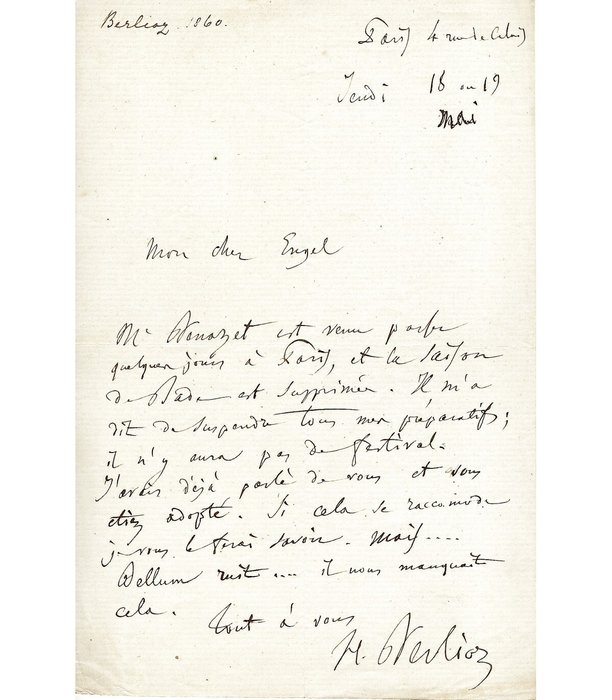 Berlioz 1860.
Paris 4 rue de Calais
Jeudi 18 ou 19
Mai
Mon cher Engel
Mr Benazet est venu passer
quelques jours à Paris, et la saison
de Bade est supprimée. Il m'a
dit de suspendre tous mes préparatifs;
il n'y aura pas de festival.
J'avais déjà parlé de vous et vous
étiez adopté. Si cela se raccommode
je vous le ferai savoir. Mais....
Bellum ruit .... il nous manquait
cela.
Tout à vous
H. Berlioz